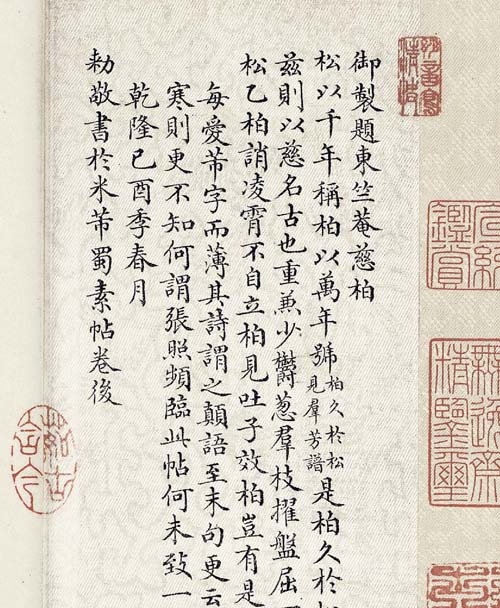 御製題東竺菴慈柏
松以千年稱柏以萬年號柏久於松見羣芳譜是柏久於
茲則以慈名古也重蒸少欝葱羣枝擢盤屈
松乙柏誚凌霄不自立柏見吐子效柏豈有是
每愛芾字而薄其詩謂之顛語至末句更云
寒則更不知何謂張照頻臨此帖何未致一
乾隆己酉季春月
勅敬書於米芾蜀素帖卷後
宣統鑑賞
無逸齋精鑒璽
茹古含今